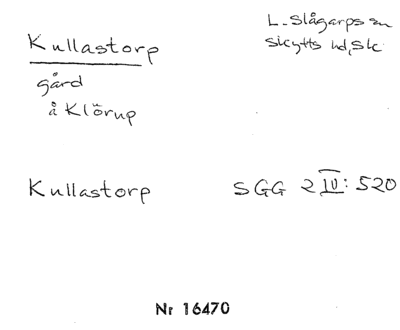 Kullastorp
L. Slågarps sn
Skytts hd, Sk
gård
å Klörup
Kullastorp
SGG 2 IV: 520
Nr 16470